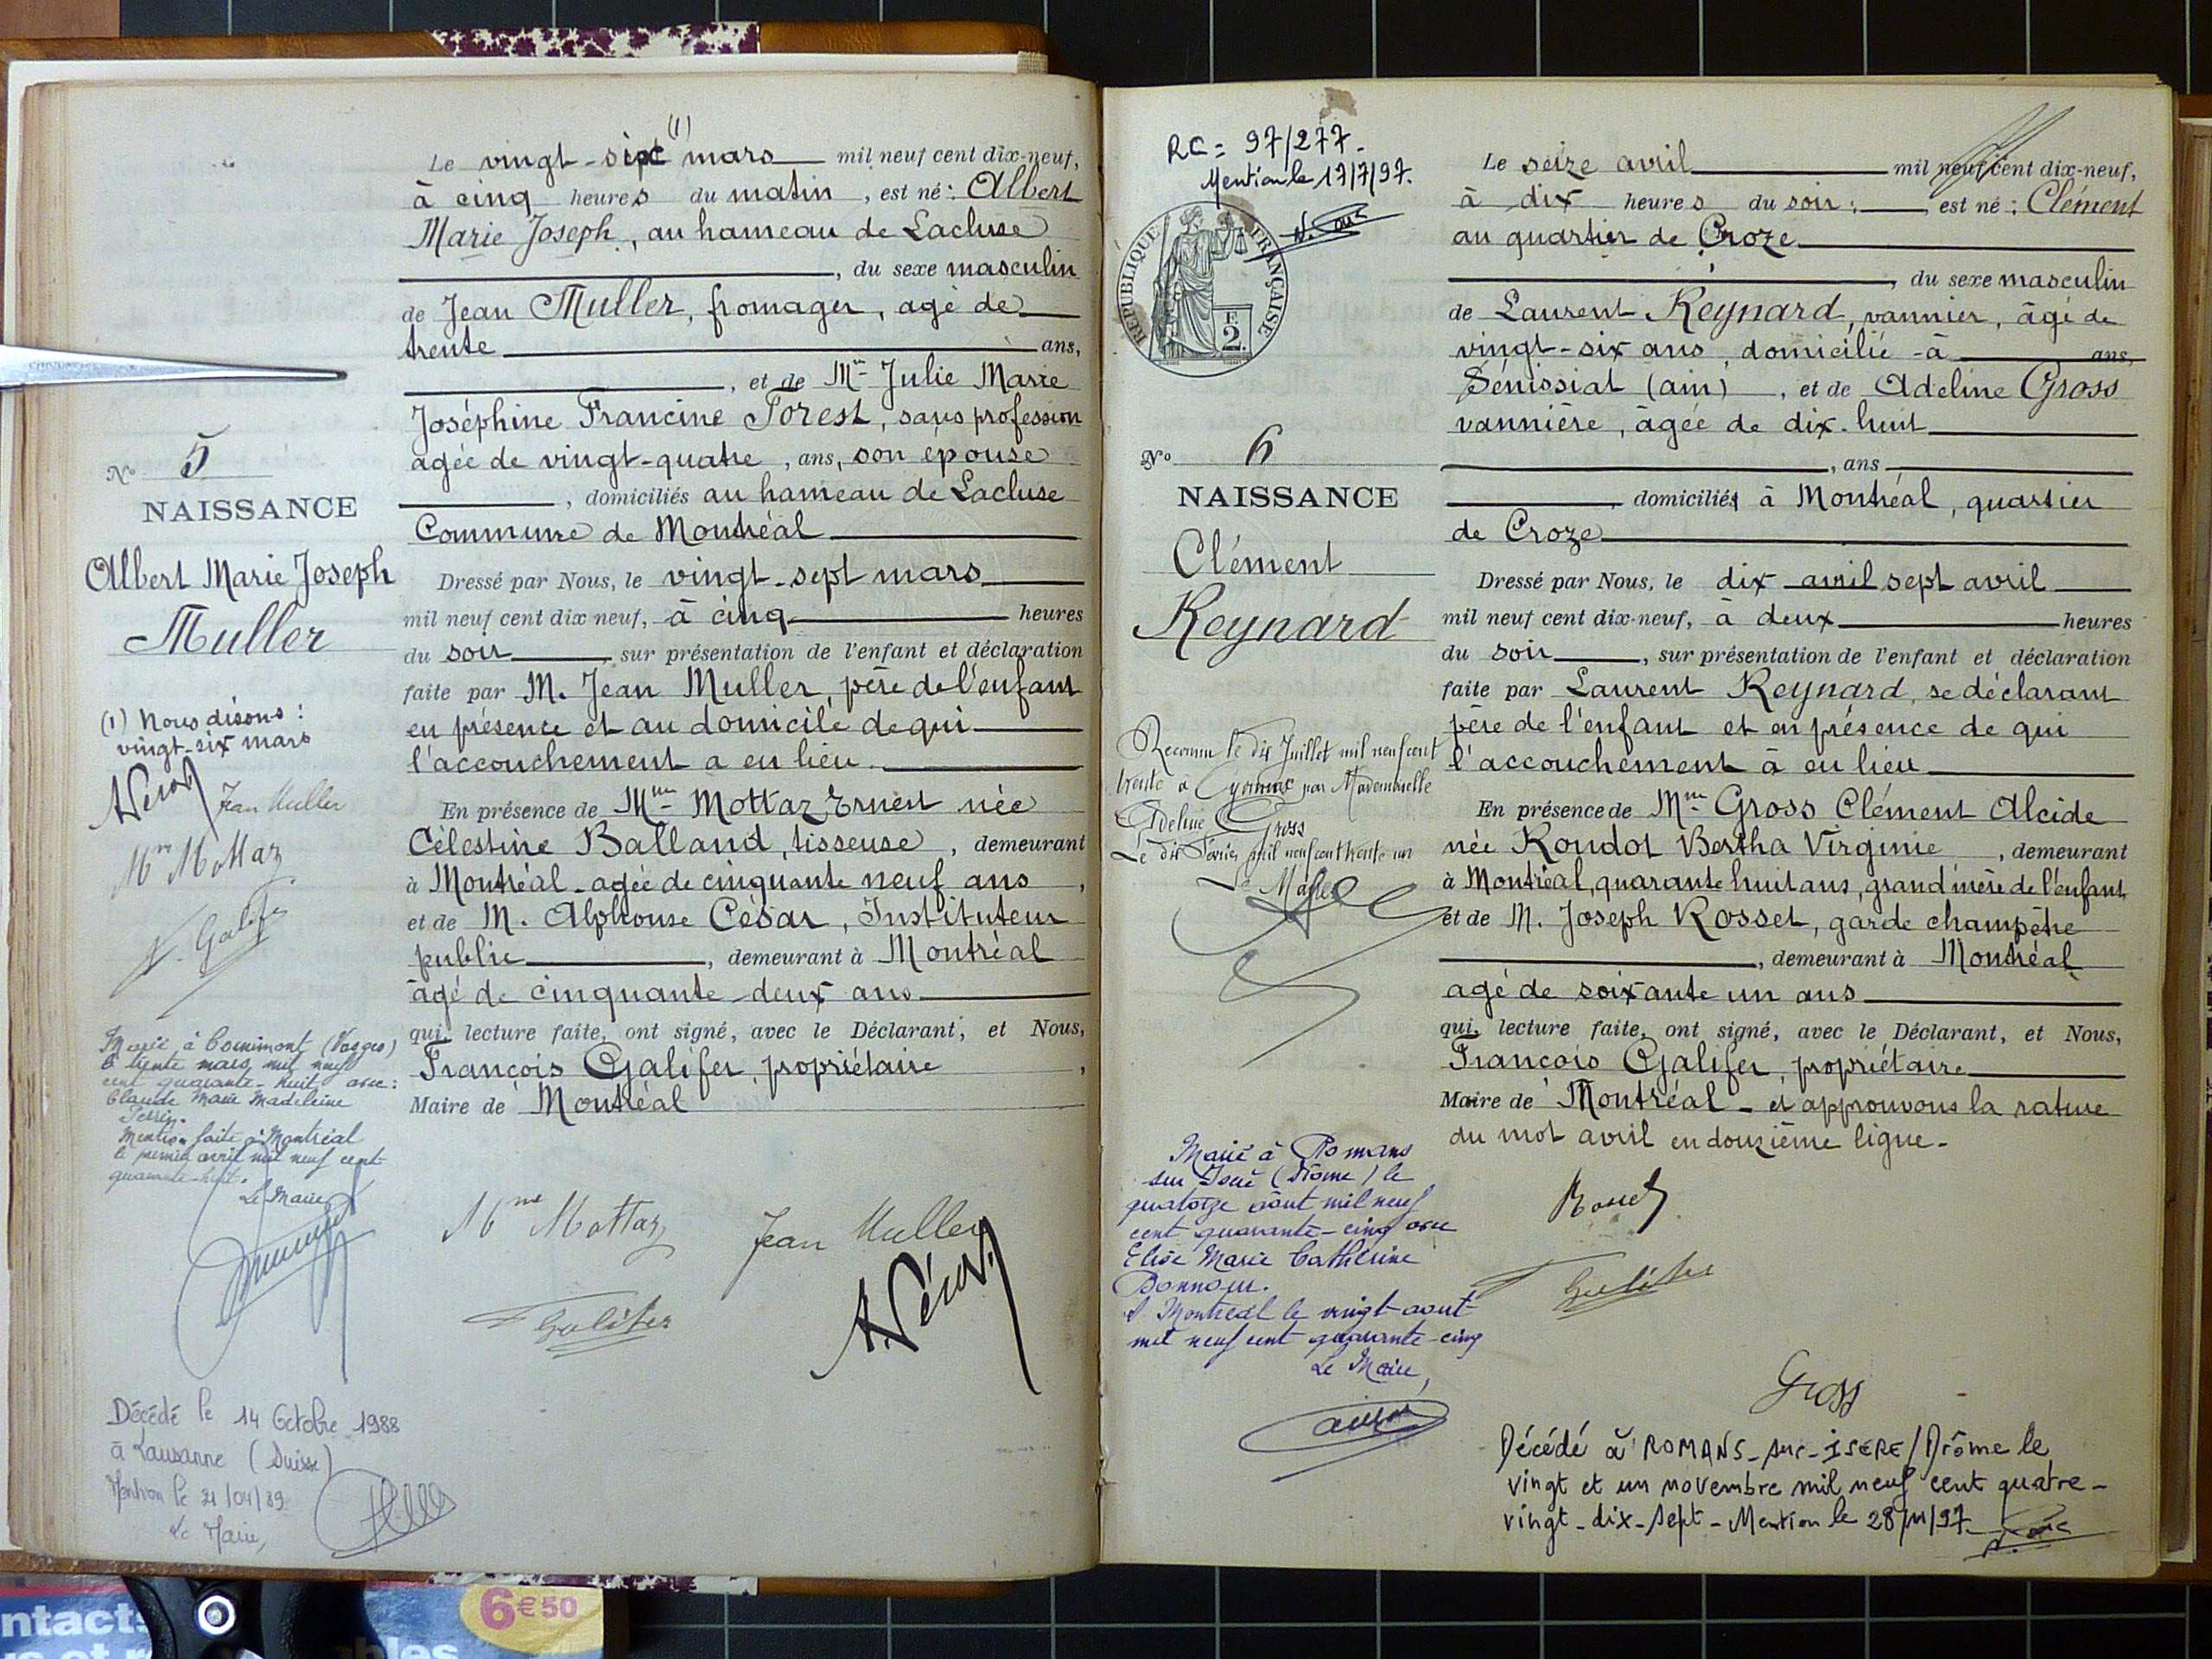 (1)
Le vingt-six mars mil neuf cent dix-neuf,
à cinq heures du matin, est né : Albert
Marie Joseph, au hameau de Lacluse
, du sexe masculin
de Jean Muller, fromager, agé de
trente ans,
, et de Mme Julie Marie
Joséphine Francine Forest, sans profession
agée de vingt-quatre, ans, son épouse
, domiciliés au hameau de Lacluse
Commune de Montréal
Dressé par Nous, le vingt-sept mars
mil neuf cent dix neuf, à cinq heures
du soir, sur présentation de l'enfant et déclaration
faite par M. Jean Muller, père de l'enfant
en présence et au domicile de qui
l'accouchement a eu lieu.
En présence de Mme Mottaz Ernest née
Célestine Balland, tisseuse, demeurant
à Montréal - agée de cinquante neuf ans,
et de M. Alphonse César, Instituteur
public, demeurant à Montréal
âgé de cinquante-deux ans
qui, lecture faite, ont signé, avec le Déclarant, et Nous,
François Galifer, propriétaire,
Maire de Montréal
Mme Mottaz
Jean Muller
F Galifer
No 5
NAISSANCE
Albert Marie Joseph
Muller
(1) Nous disons :
vingt-six mars
Jean Muller
Mme Mottaz
F. Galifer
Marié à Cornimont (Vosges)
le trente mars mil neuf
cent quarante-huit avec :
Claude Marie Madeleine
Perrin.
Mention faite à Montréal
le premier avril mil neuf cent
quarante-huit.
Le Maire
Décédé le 14 Octobre 1988
à Lausanne (Suisse)
Mention le 21/04/89
Le Maire,
RC = 97/277.
Mention le 17/7/97.
RÉPUBLIQUE FRANÇAISE
F.
2.
No 6
NAISSANCE
Clément
Reynard
Reconnu le dix Juillet mil neuf cent
trente à Oyonnax par Mademoiselle
Adeline Gross
Le dix Février mil neuf cent trente un
Le Maire
Marié à Romans
sur Isère (Drôme) le
quatorze août mil neuf
cent quarante-cinq avec
Elise Marie Catherine
A Montréal le vingt-aout
mil neuf cent quarante-cinq
Le Maire,
Le seize avril mil neuf cent dix-neuf,
à dix heures du soir, est né : Clément
au quartier de Croze
, du sexe masculin
de Laurent Reynard, vannier, âgé de
vingt-six ans, domicilié à ans,
Sénissiat (ain), et de Adeline Gross
vannière, âgée de dix-huit
, ans
, domiciliés à Montréal, quartier
de Croze
Dressé par Nous, le dix avril sept avril
mil neuf cent dix-neuf, à deux heures
du soir, sur présentation de l'enfant et déclaration
faite par Laurent Reynard, se déclarant
père de l'enfant et en présence de qui
l'accouchement à eu lieu
En présence de Mme Gross Clément Alcide
née Roudot Bertha Virginie, demeurant
à Montréal, quarante huit ans, grand'mère de l'enfant
et de M. Joseph Rosset, garde champêtre
, demeurant à Montréal
agé de soixante un ans
qui, lecture faite, ont signé, avec le Déclarant, et Nous,
François Galifer, propriétaire
Maire de Montréal - et approuvons la rature
du mot avril en douzième ligne -
Rosset
F Galifer
Gross
Décédé à ROMANS-sur-ISERE/Drôme le
vingt et un novembre mil neuf cent quatre-
vingt-dix-sept - Mention le 28/11/97
6€50